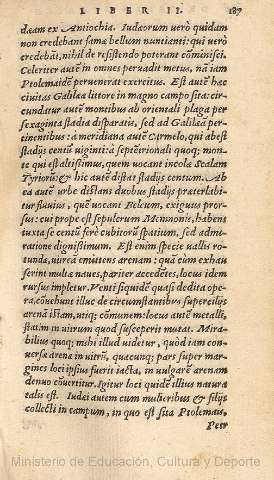 LIBER II. 187
dæam ex Antiochia. Iudæorum uerò quidam
non credebant famæ bellum nuntianti: qui uerò
credebāt, nihil de resistendo poterant cōminisci.
Celeriter autē in omnes peruasit metus, nā iam
Ptolemaidē peruenerat exercitus. Est autē hæc
ciuitas Galilææ littore in magno campo sita: cir-
cundatur autē montibus ab orientali plaga per
sexaginta stadia disparatis, sed ad Galilæā per-
tinentibus: a meridiana autē Carmelo, qui abest
stadijs centū uiginti: a septētrionali quoq; mon-
te qui est altissimus, quem uocant incolæ Scalam
Tyriorū: & hic autē distat stadijs centum. Ab
ea autē urbe distans duobus stadijs præterlabi-
tur fluuius, quē uocant Beleum, exiguus pror-
sus: cui prope est sepulcrum Memnonis, habens
iuxta se centū ferè cubitorū spatium, sed admi-
ratione dignissimum. Est enim specie uallis ro-
tunda, uitreā emittens arenam: quā cum exhau-
serint multæ naues, pariter accedētes, locus idem
rursus impletur. Venti siquidē quasi dedita ope-
ra, cōuehunt illuc de circumstantibus supercilijs
arenā istam, utiq; cōmunem: locus autē metalli,
statim in uitrum quod susceperit mutat. Mira-
bilius quoq; mihi illud uidetur, quòd iam con-
uersæ arenæ in uitrū, quæcunq; pars super mar-
gines loci ipsius fuerit iacta, in uulgarē arenam
denuo cōuertitur. Igitur loci quidē illius natura
talis est. Iudæi autem cum mulieribus & filijs
collecti in campum, in quo est sita Ptolemais,
Petr
Ministerio de Educación, Cultura y Deporte